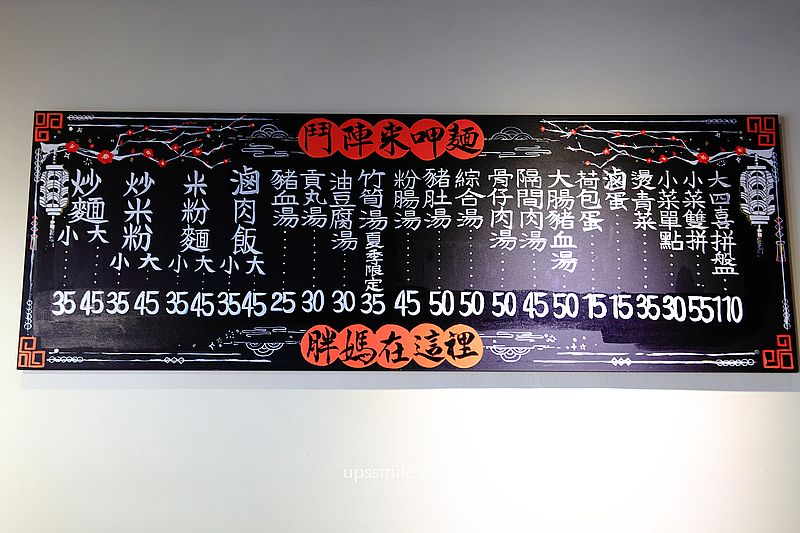 鬥陣來呷麵
大四喜拼盤 110
小菜雙拼 55
小菜單點 30
燙青菜 35
滷蛋 15
荷包蛋 15
大腸豬血湯 50
隔間肉湯 45
骨仔肉湯 50
綜合湯 50
豬肚湯 50
粉腸湯 45
竹筍湯夏季限定 35
油豆腐湯 30
貢丸湯 30
豬血湯 25
滷肉飯 大 45 小 35
米粉麵 大 45 小 35
炒米粉 大 45 小 35
炒麵 大 45 小 35
胖媽在這裡
upssmile.com